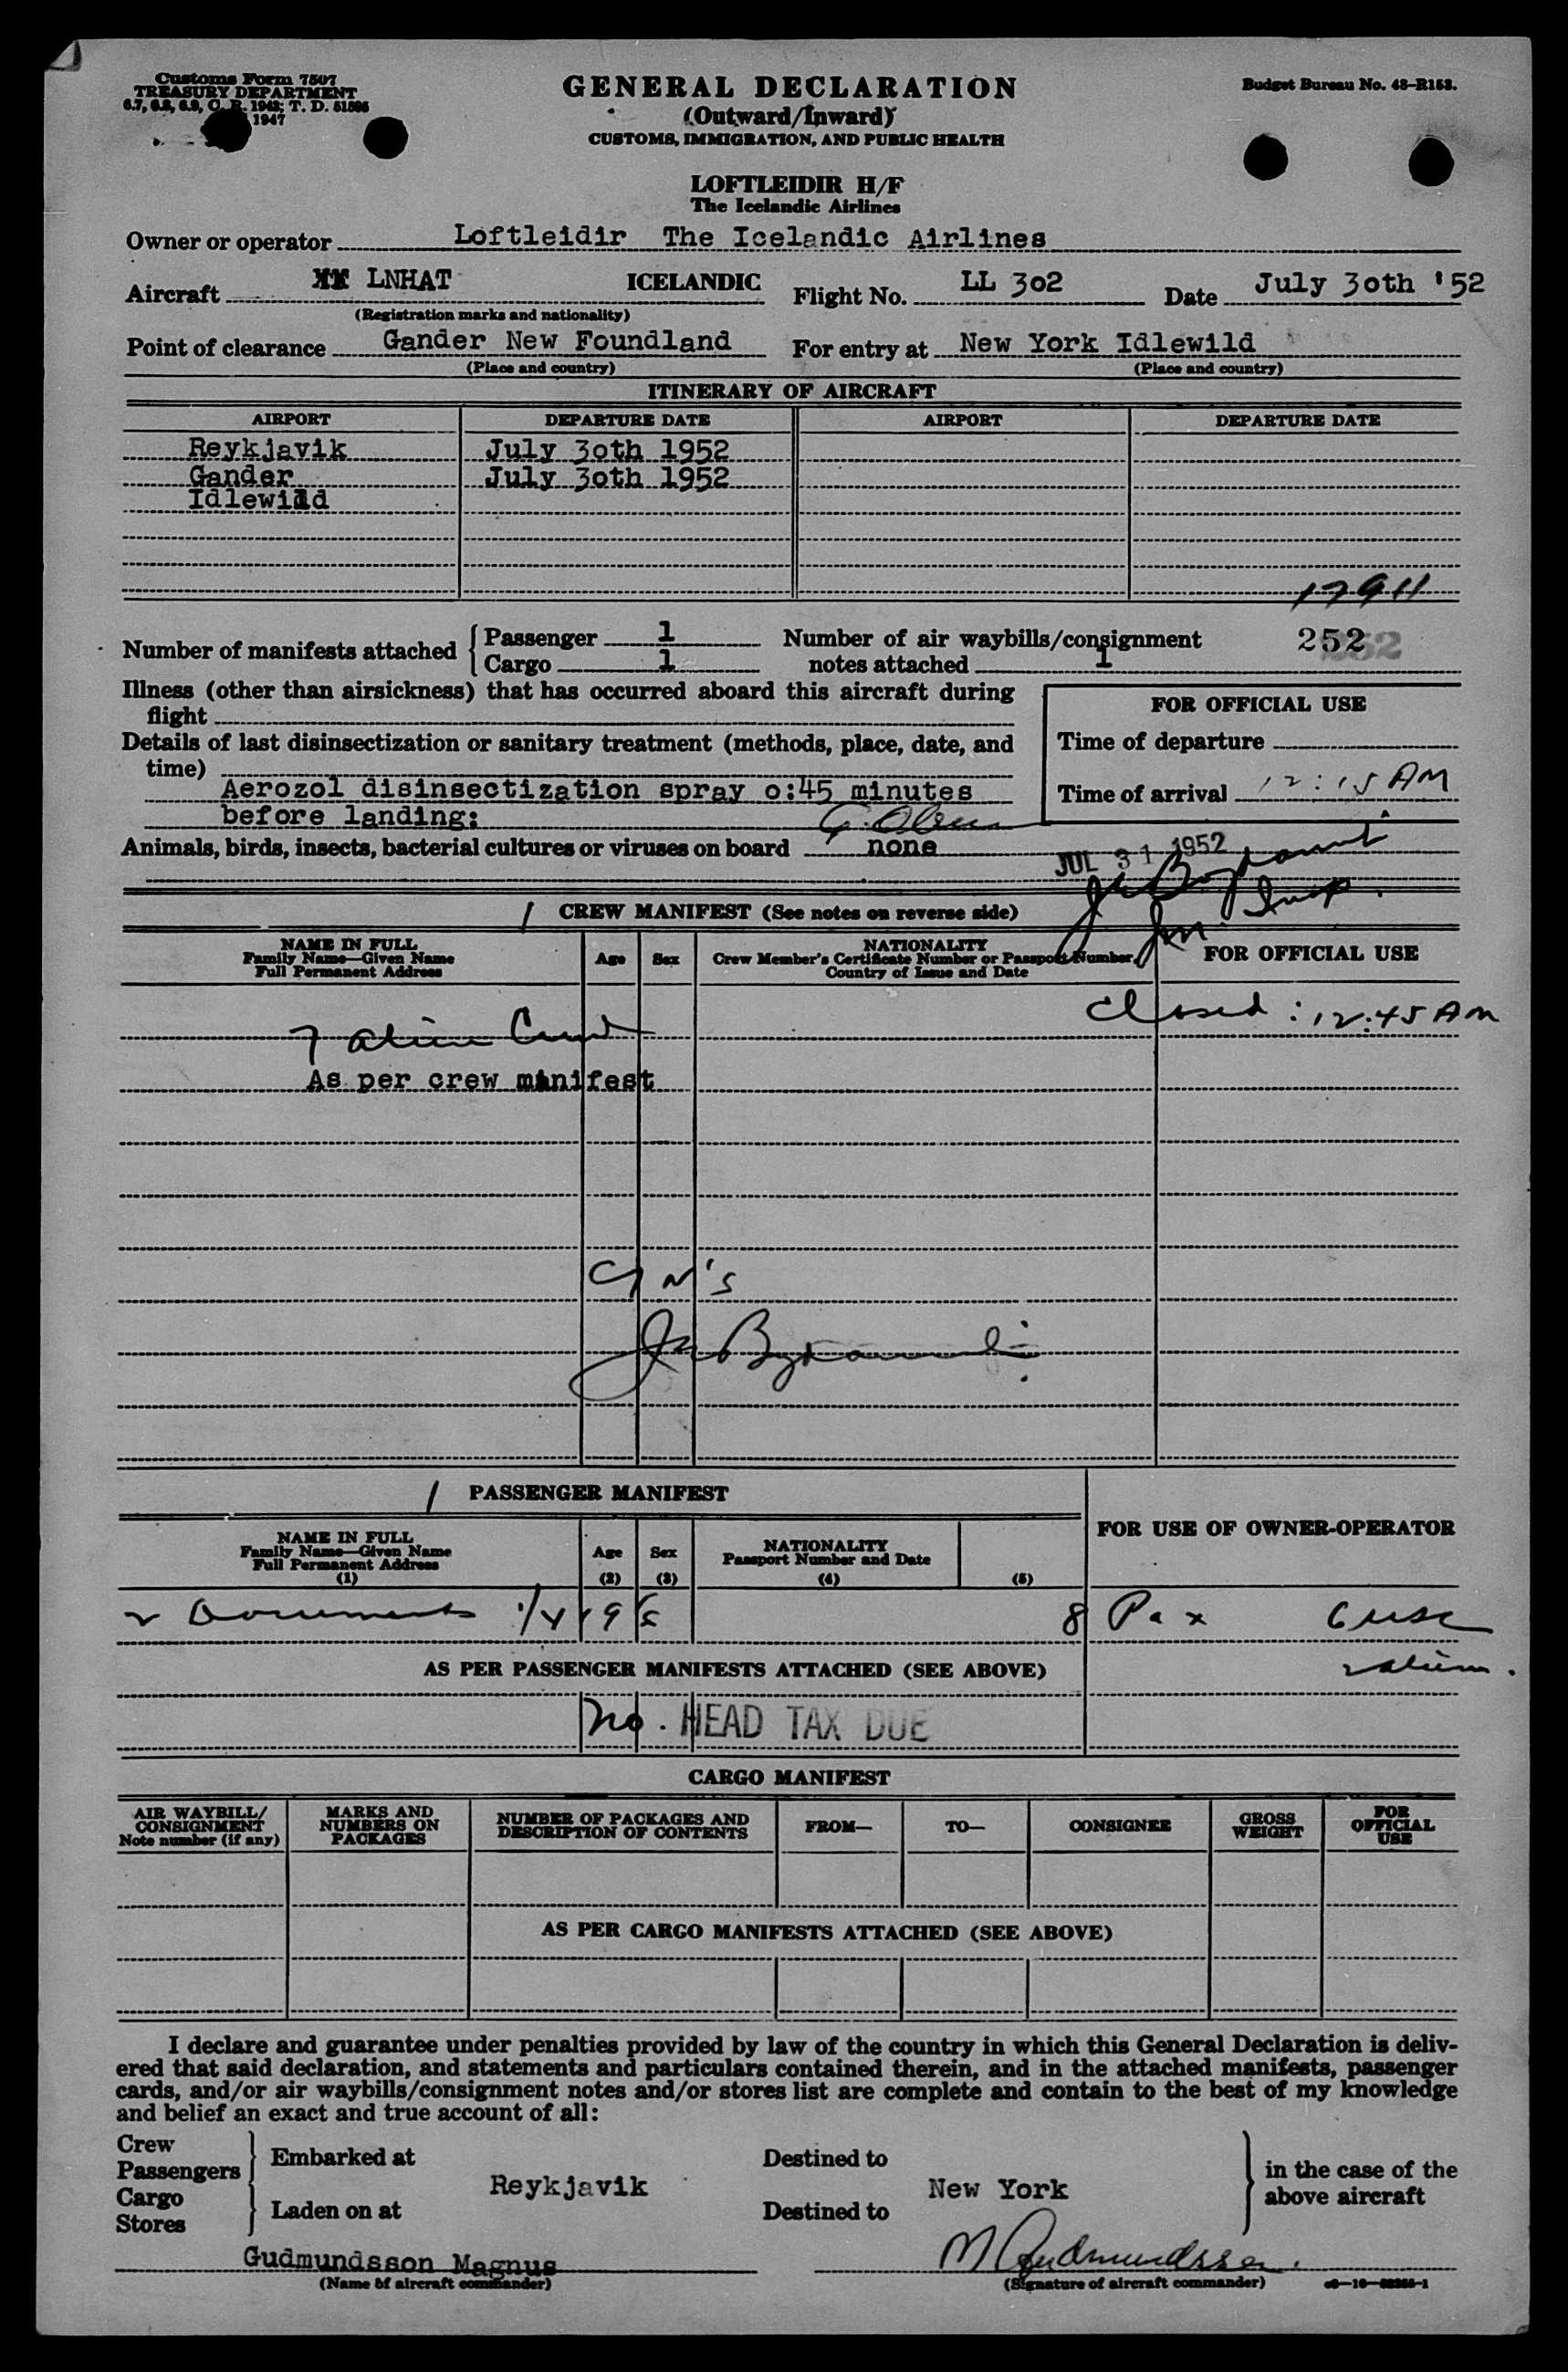 Customs Form 7507
TREASURY DEPARTMENT
6.7, 6.8, 6.9, C. R. 1943; T. D. 51596
1947
GENERAL DECLARATION
(Outward/Inward)
CUSTOMS, IMMIGRATION, AND PUBLIC HEALTH
Budget Bureau No. 48-R153.
LOFTLEIDIR H/F
The Icelandic Airlines
Owner or operator Loftleidir The Icelandic Airlines
Aircraft LNHAT ICELANDIC Flight No. LL 302 Date July 30th '52
(Registration marks and nationality)
Point of clearance Gander New Foundland For entry at New York Idlewild
(Place and country) (Place and country)
ITINERARY OF AIRCRAFT
AIRPORT DEPARTURE DATE AIRPORT DEPARTURE DATE
Reykjavik July 30th 1952
Gander July 30th 1952
Idlewild
17911
Number of manifests attached { Passenger 1 Number of air waybills/consignment 252
Cargo 1 notes attached 1
Illness (other than airsickness) that has occurred aboard this aircraft during
flight
FOR OFFICIAL USE
Details of last disinsectization or sanitary treatment (methods, place, date, and
time)
Time of departure
Aerozol disinsectization spray 0:45 minutes
Time of arrival 12:15 AM
before landing:
Animals, birds, insects, bacterial cultures or viruses on board none
JUL 31 1952
CREW MANIFEST (See notes on reverse side)
NAME IN FULL
Family Name—Given Name
Full Permanent Address
Age Sex
NATIONALITY
Crew Member's Certificate Number or Passport Number
Country of Issue and Date
FOR OFFICIAL USE
Closed: 12:45 AM
7 alien Crew
As per crew manifest
PASSENGER MANIFEST
FOR USE OF OWNER-OPERATOR
NAME IN FULL
Family Name—Given Name
Full Permanent Address
(1)
Age
(2)
Sex
(3)
NATIONALITY
Passport Number and Date
(4) (5)
Documents 8 Pax 6 usc
2 alien.
AS PER PASSENGER MANIFESTS ATTACHED (SEE ABOVE)
No. HEAD TAX DUE
CARGO MANIFEST
AIR WAYBILL/
CONSIGNMENT
Note number (if any)
MARKS AND
NUMBERS ON
PACKAGES
NUMBER OF PACKAGES AND
DESCRIPTION OF CONTENTS
FROM— TO— CONSIGNEE
GROSS
WEIGHT
FOR
OFFICIAL
USE
AS PER CARGO MANIFESTS ATTACHED (SEE ABOVE)
I declare and guarantee under penalties provided by law of the country in which this General Declaration is deliv-
ered that said declaration, and statements and particulars contained therein, and in the attached manifests, passenger
cards, and/or air waybills/consignment notes and/or stores list are complete and contain to the best of my knowledge
and belief an exact and true account of all:
Crew
Passengers
Embarked at
Destined to
in the case of the
above aircraft
Reykjavik New York
Cargo
Stores
Laden on at
Destined to
Gudmundsson Magnus M Gudmundsson.
(Name of aircraft commander) (Signature of aircraft commander)